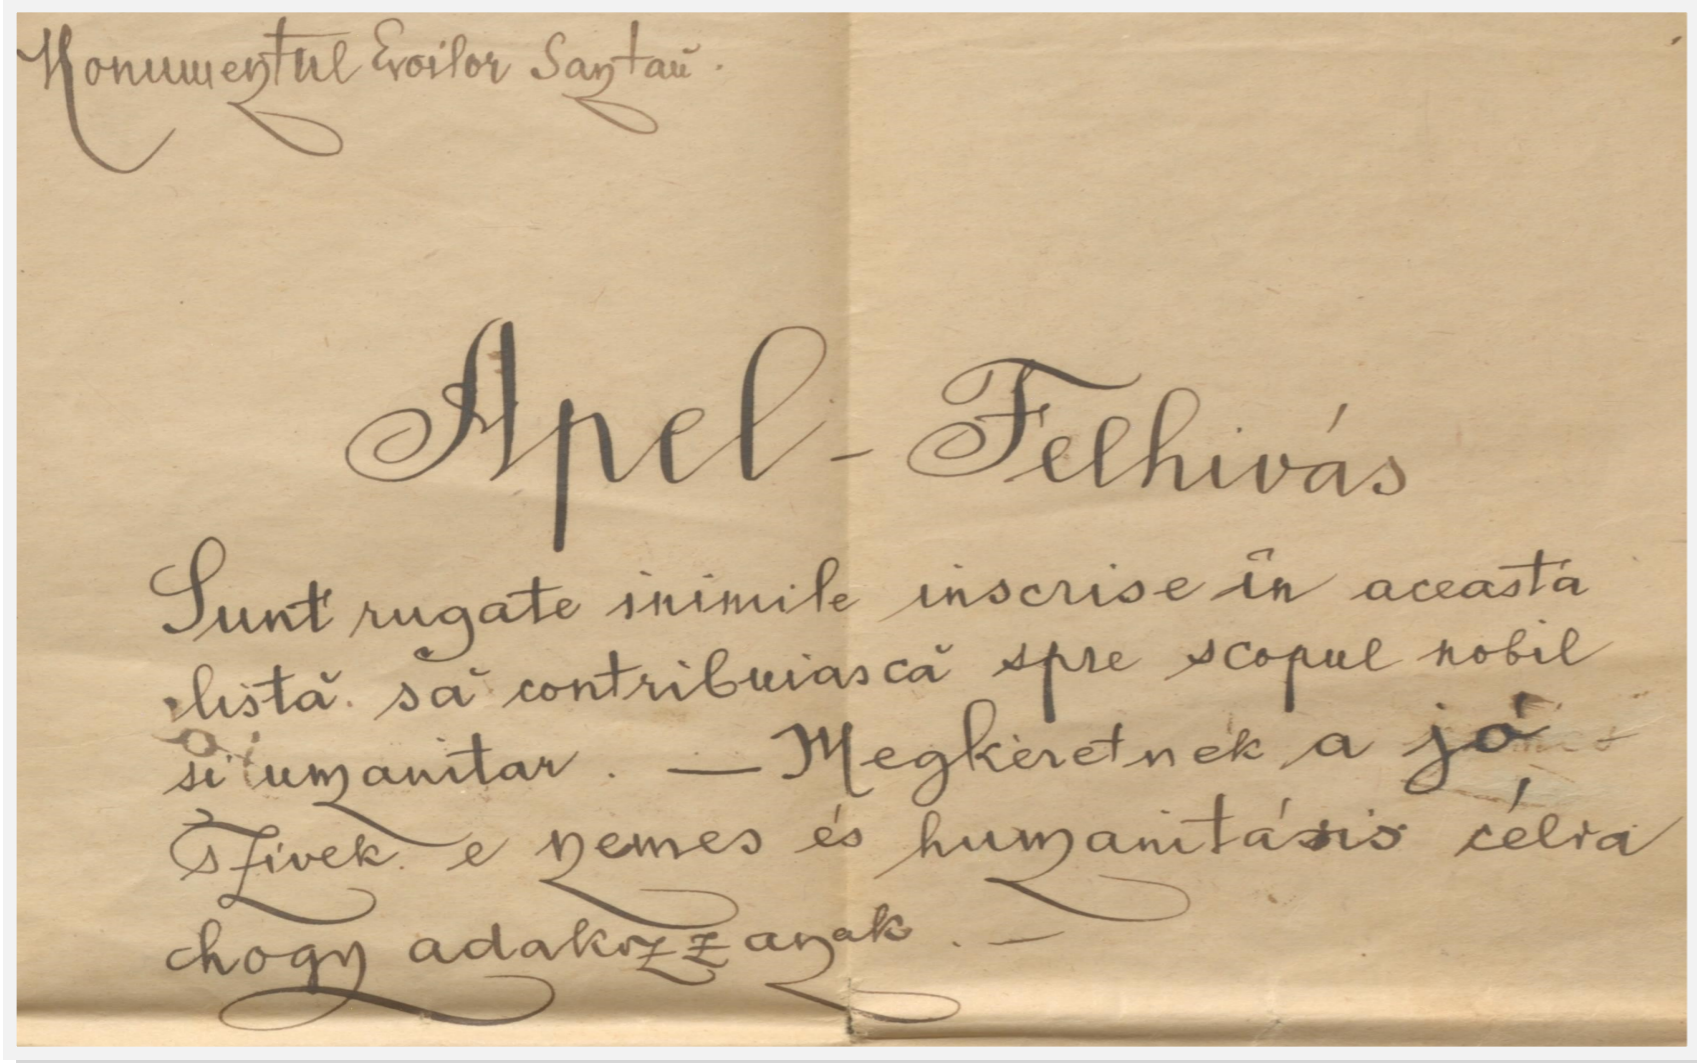 Monumentul Eroilor Santău.
Apel - Felhivás
Sunt rugate inimile inscrise în această
listă să contribuiască spre scopul nobil
si umanitar. — Megkéretnek a jó
szivek e nemes és humanitásis célra
hogy adakozzanak. —